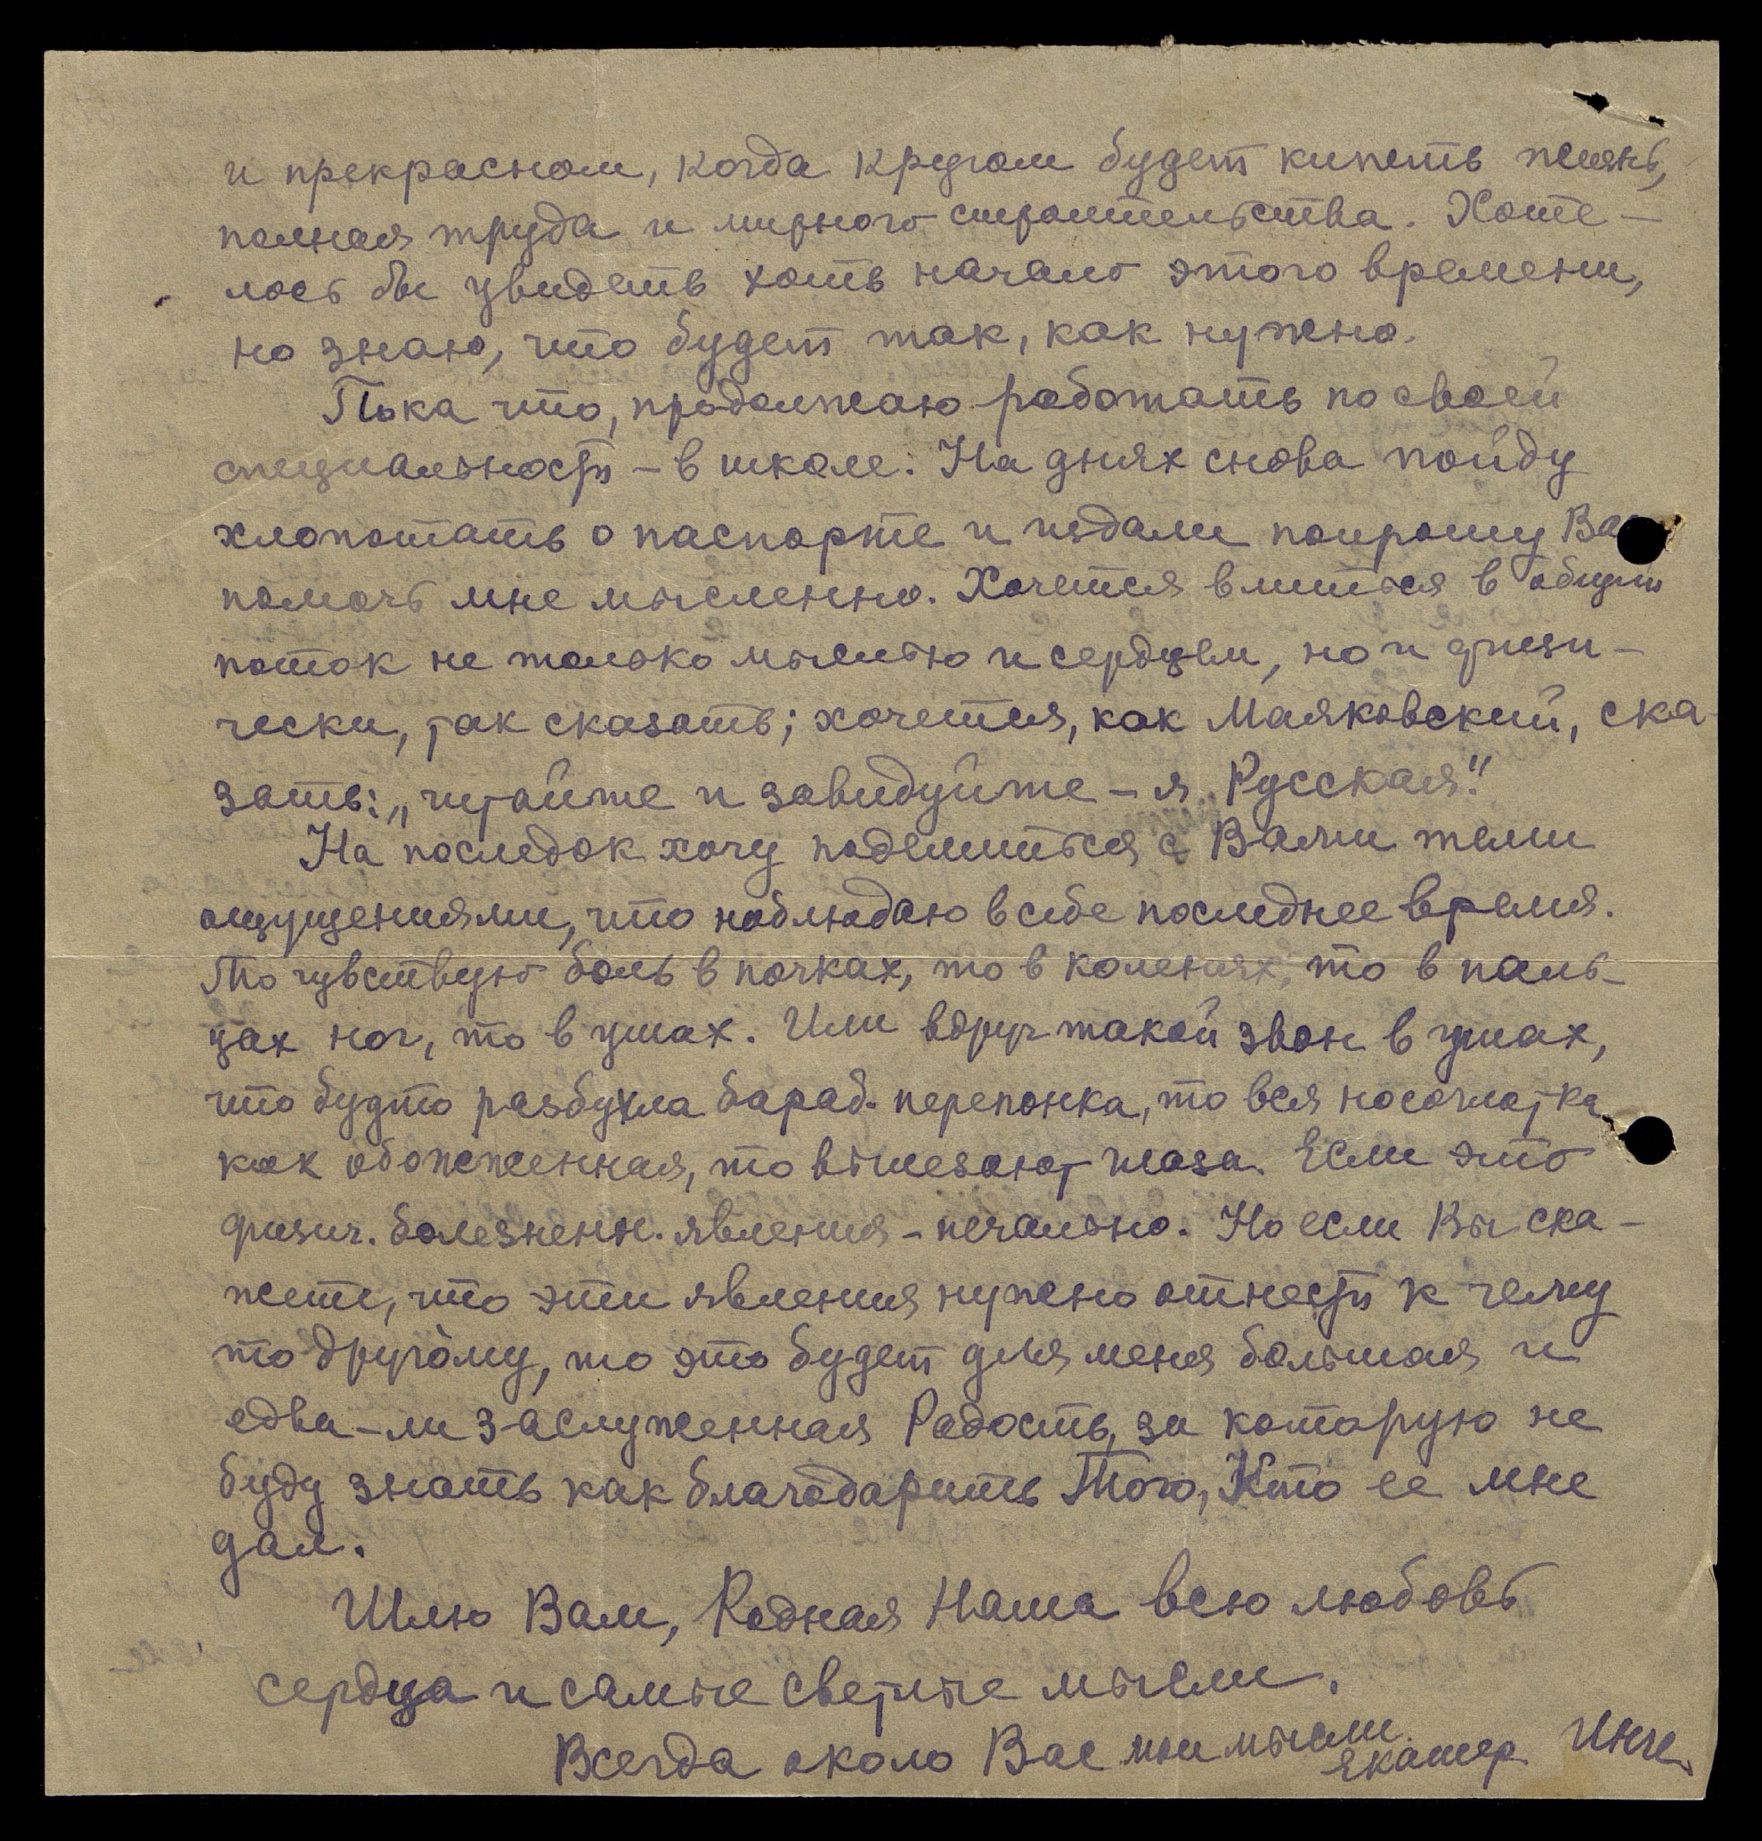 и прекрасном, когда кругом будет кипеть жизнь,
полная труда и мирного строительства. Хоте-
лось бы увидеть хоть начало этого времени,
но знаю, что будет так, как нужно.
Пока что, продолжаю работать по своей
специальности – в школе. На днях снова пойду
хлопотать о паспорте и издали попрошу Вас
помочь мне мысленно. Хочется влиться в общий
поток не только мыслью и сердцем, но и физи-
чески, так сказать; хочется, как Маяковский, ска-
зать: „читайте и завидуйте – я Русская"!
На последок хочу поделиться с Вами теми
ощущениями, что наблюдаю в себе последнее время.
То чувствую боль в почках, то в коленях, то в паль-
цах ног, то в ушах. Или вдруг такой звон в ушах,
что будто разбухла бараб. перепонка, то вся носоглотка
как обожженная, то вылезают глаза. Если это
физич. болезненн. явления – печально. Но если Вы ска-
жете, что эти явления нужно отнести к чему
то другому, то это будет для меня большая и
едва-ли заслуженная Радость, за которую не
буду знать как благодарить Того, Кто ее мне
дал.
Шлю Вам, Родная Наша всю любовь
сердца и самые светлые мысли.
Всегда около Вас мои мысли.
Екатер Инге